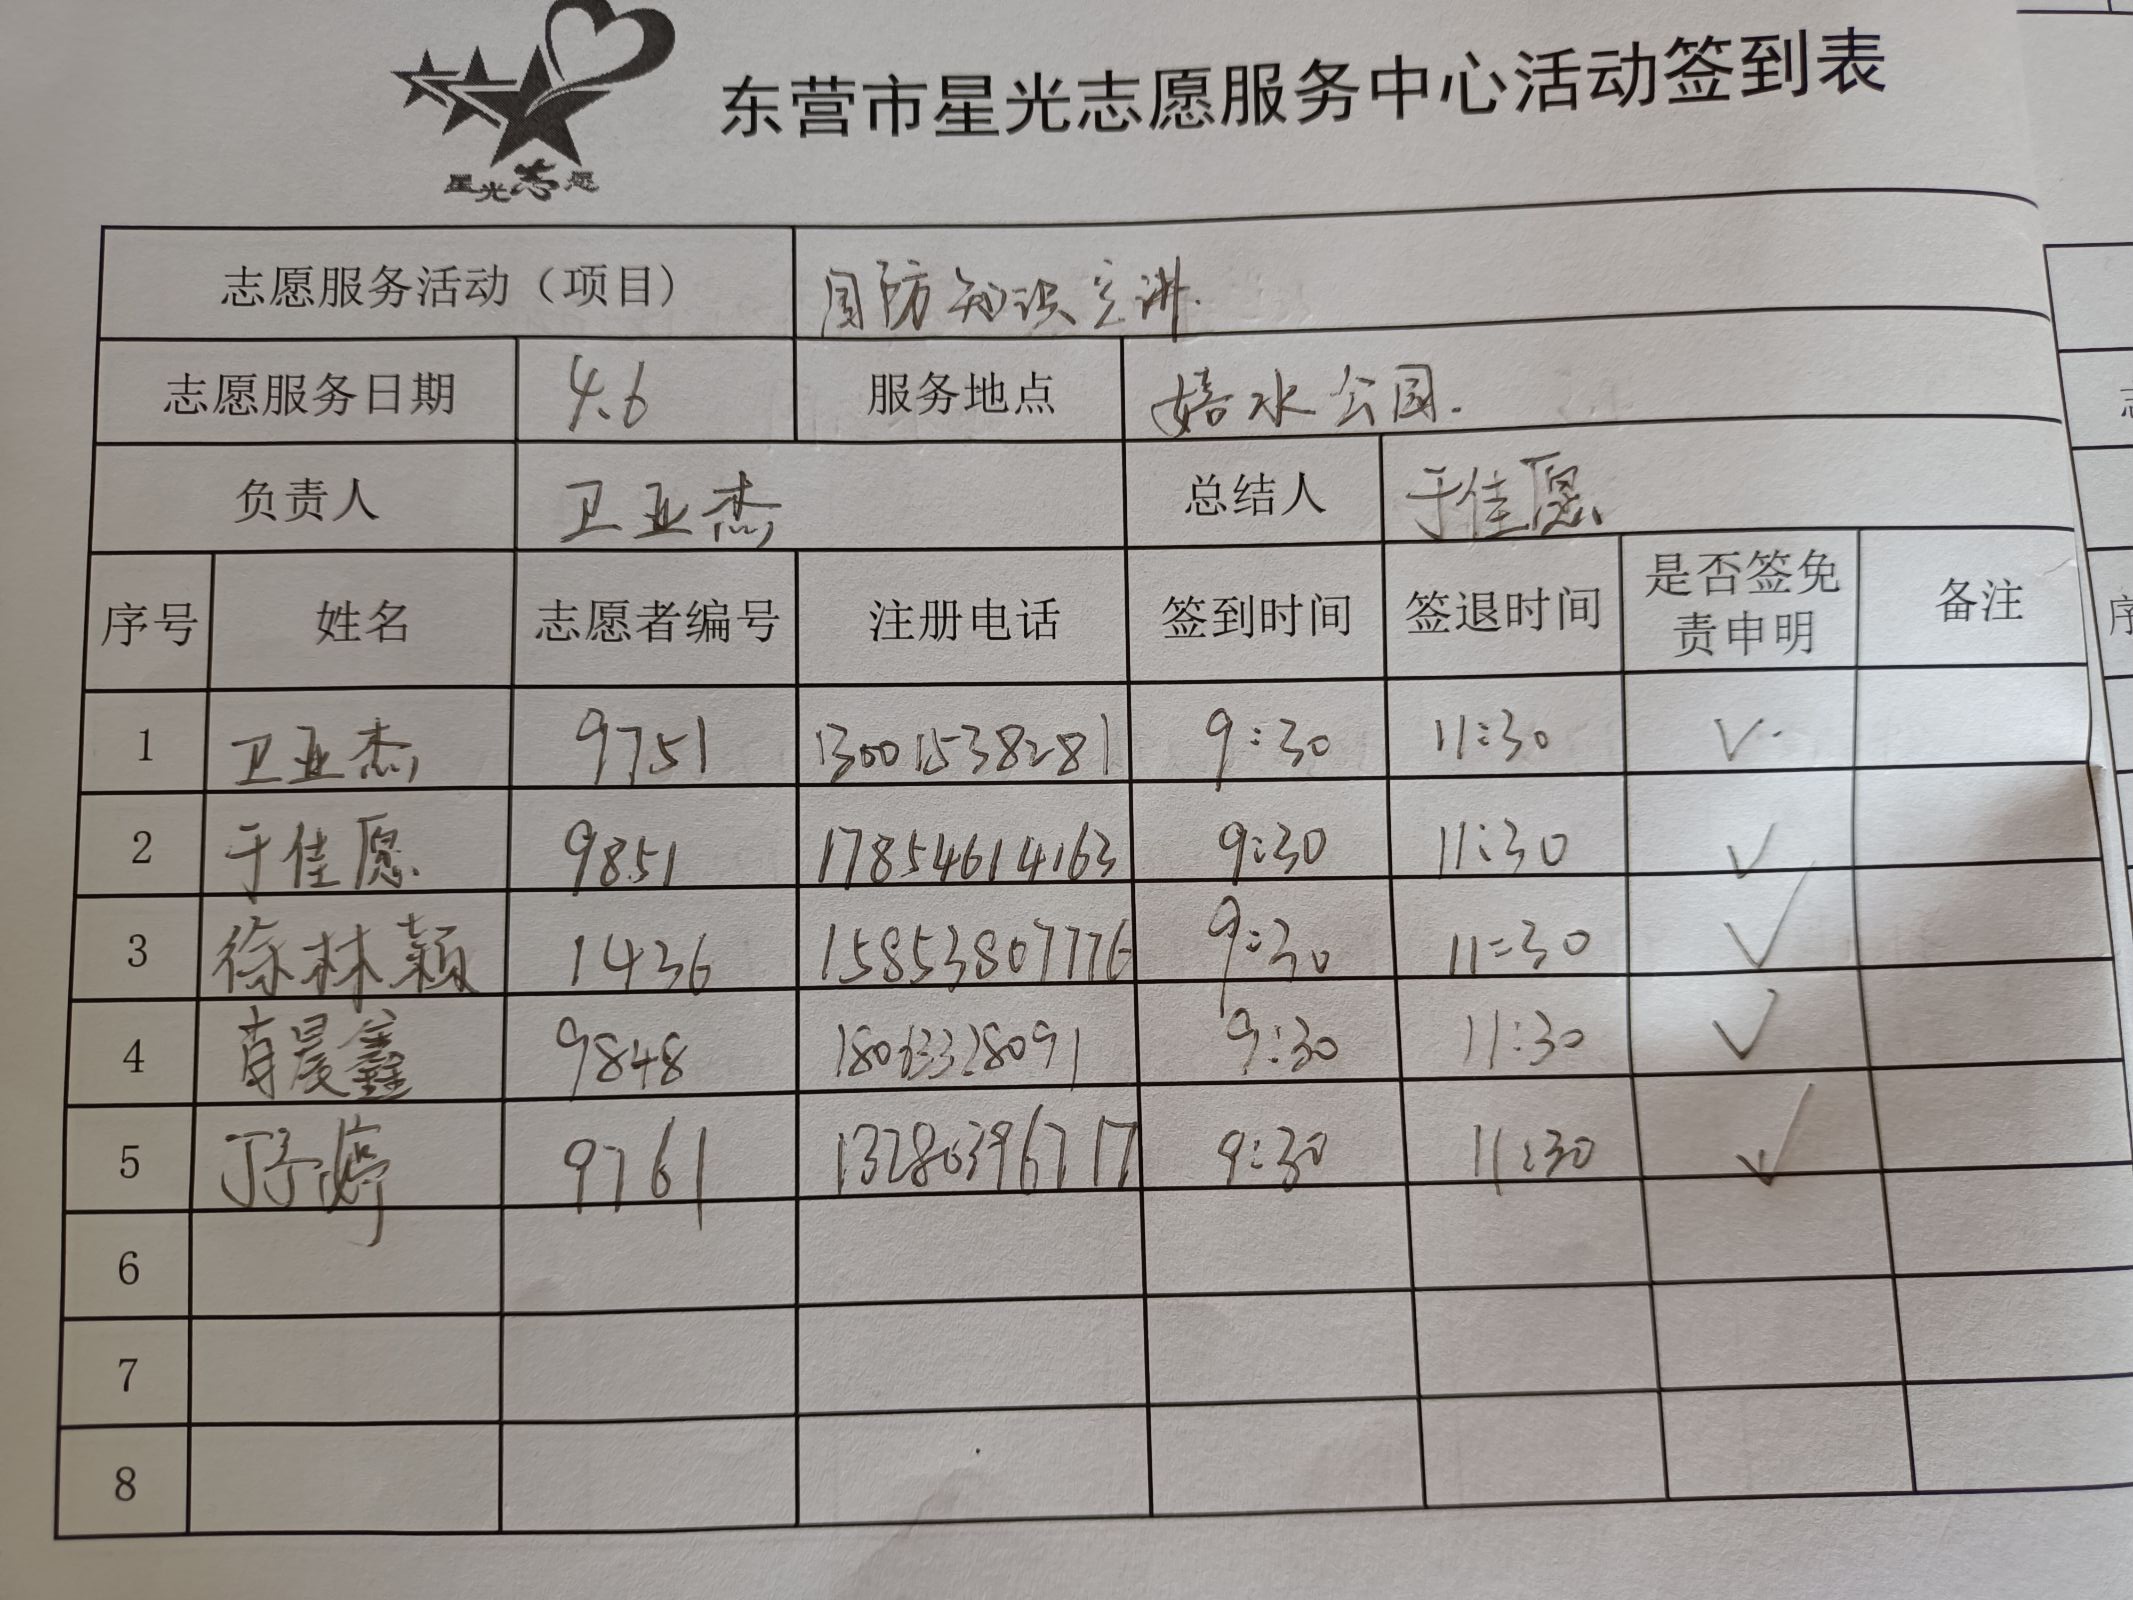 星光志愿
东营市星光志愿服务中心活动签到表
志愿服务活动（项目） 国防知识宣讲.
志愿服务日期 4.6 服务地点 嬉水公园.
负责人 卫亚杰 总结人 于佳愿
序号 姓名 志愿者编号 注册电话 签到时间 签退时间 是否签免责申明 备注
1 卫亚杰 9751 13001538281 9:30 11:30 √
2 于佳愿 9851 17854614163 9:30 11:30 √
3 徐林颖 1436 15853807776 9:30 11:30 √
4 晨鑫 9848 18063328091 9:30 11:30 √
5 丁子婷 9761 13280396717 9:30 11:30 √
6
7
8